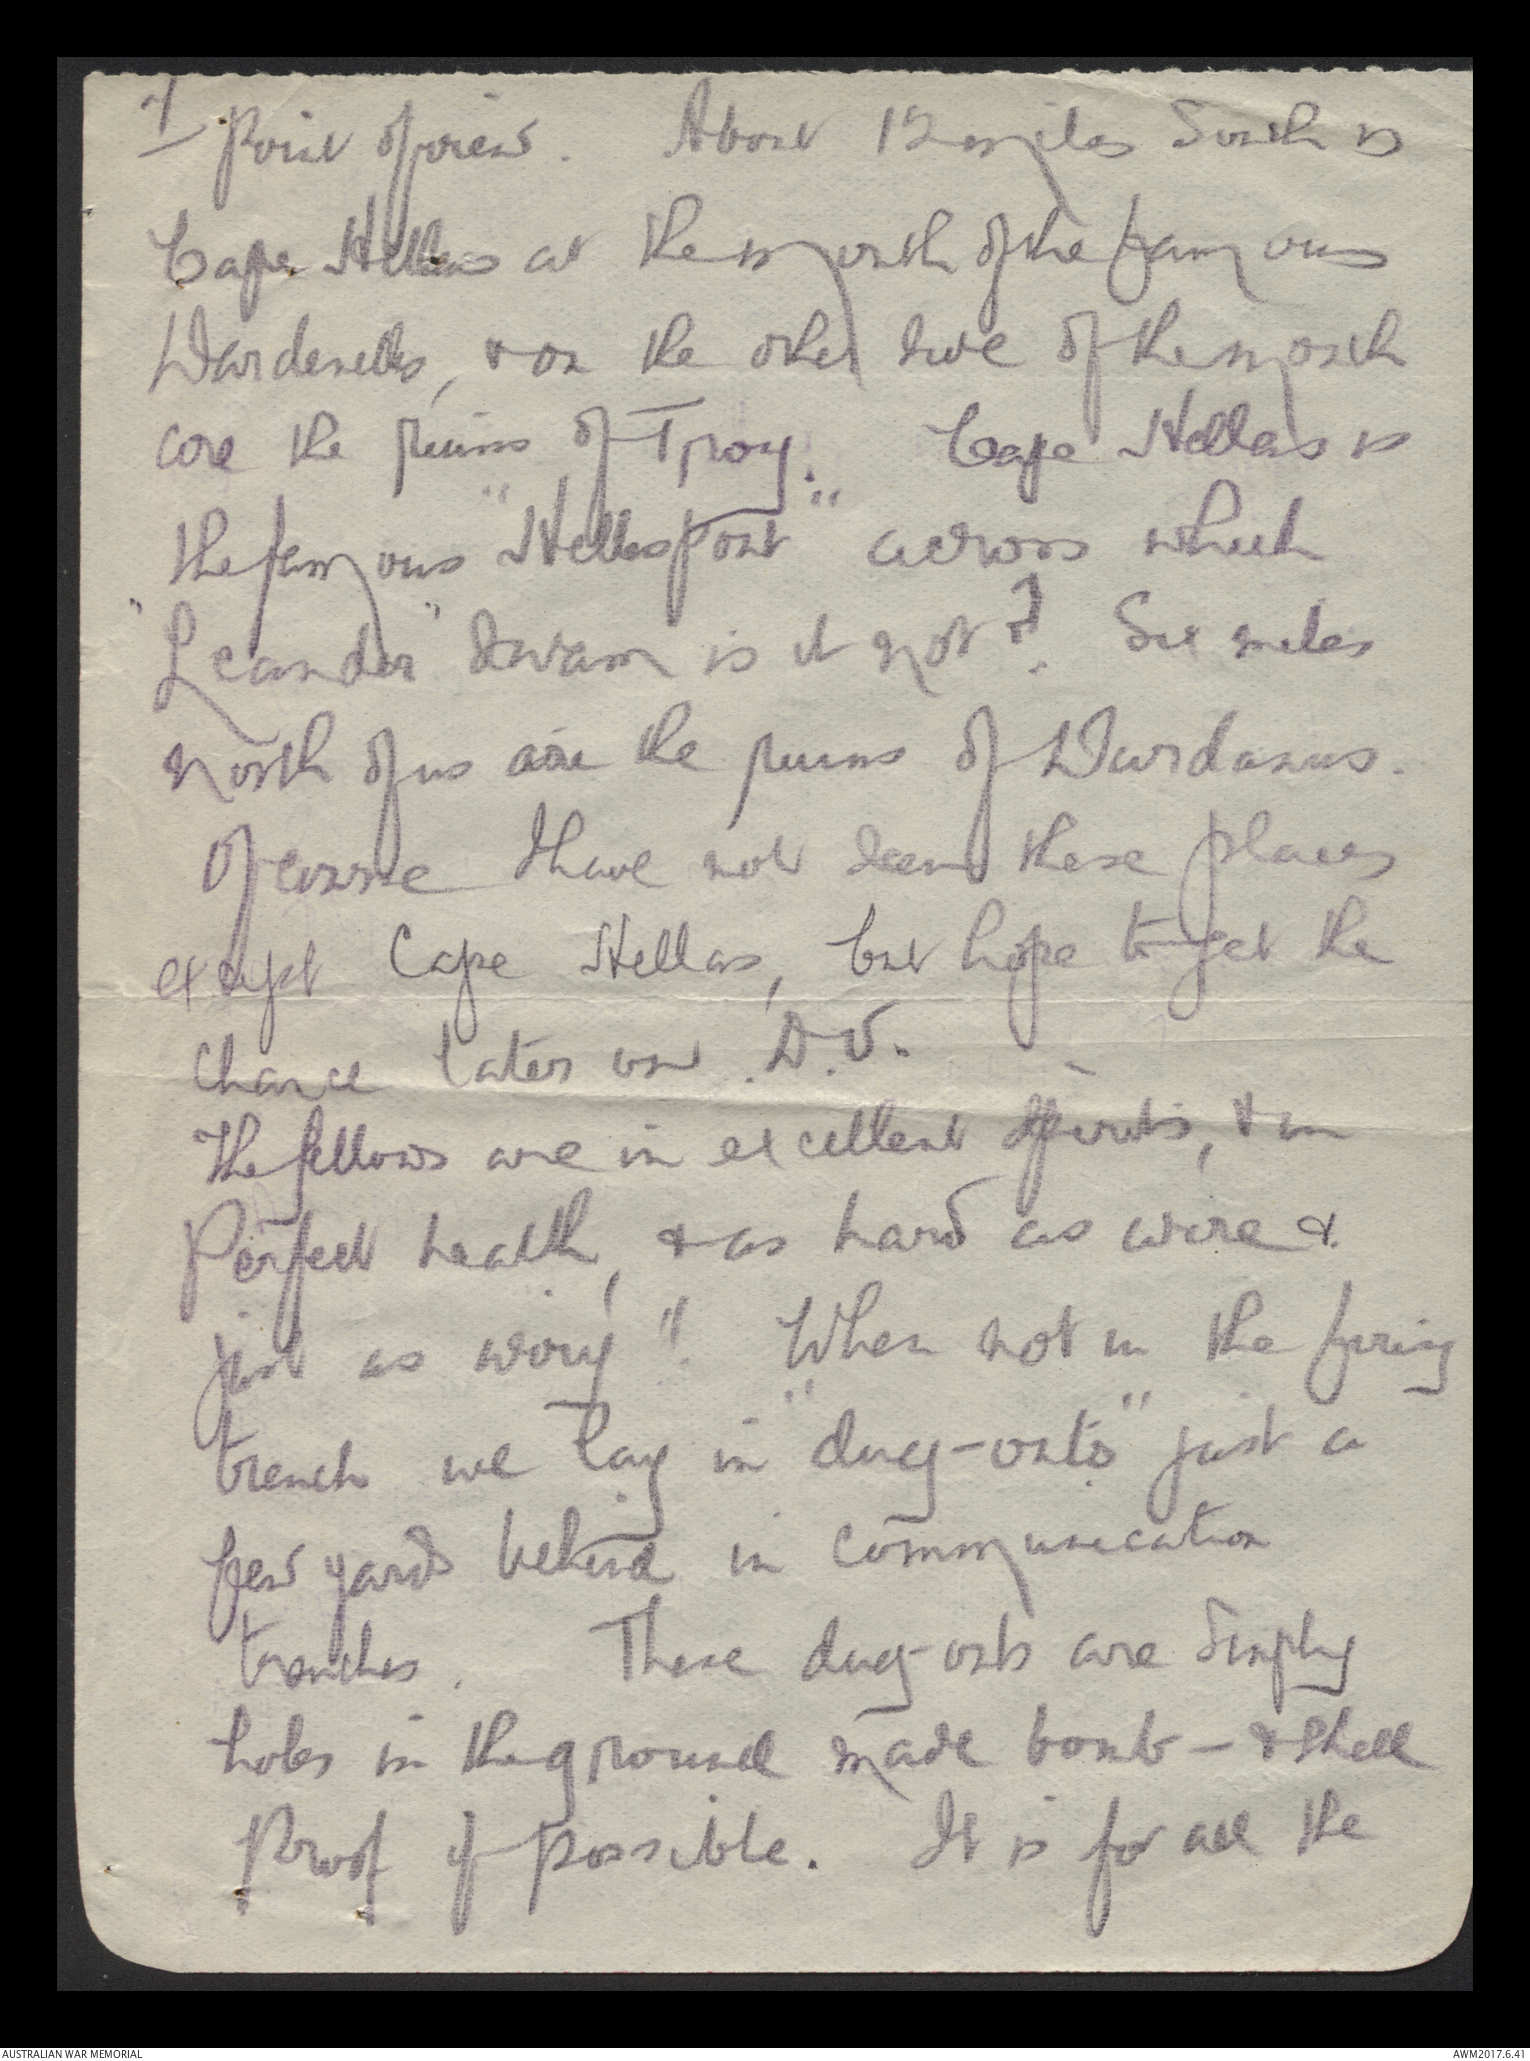 7/ Point of view. About 12 miles South is
Cape Hellas at the mouth of the famous
Dardenelles, & on the other side of the mouth
are the ruins of Troy. Cape Hellas is
the famous "Hellespont" across which
"Leander" swam is it not? Six miles
north of us are the ruins of Dardanus.
Of course I have not seen these places
except Cape Hellas, but hope to get the
chance later on. D.V.
The fellows are in excellent spirits, & in
Perfect health, & as hard as wire &
just as wiry"! When not in the firing
trench we lay in "dug-outs" just a
few yards behind in communication
trenches. These dug-outs are simply
holes in the ground made bomb- & shell
Proof if possible. It is for all the
AUSTRALIAN WAR MEMORIAL
AWM2017.6.41